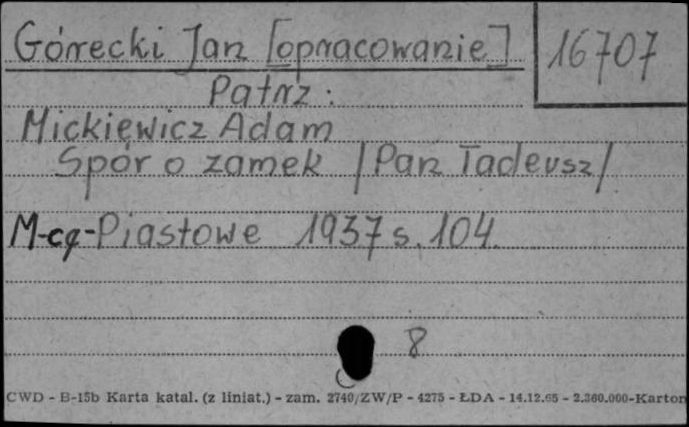 Górecki Jan [opracowanie]
16707
Patrz:
Mickiewicz Adam
Spór o zamek /Pan Tadeusz/
M-cą-Piastowe 1937 s. 104.
8
CWD - B-15b Karta katal. (z liniat.) - zam. 2740/ZW/P - 4275 - ŁDA - 14.12.65 - 2.360.000-Karton